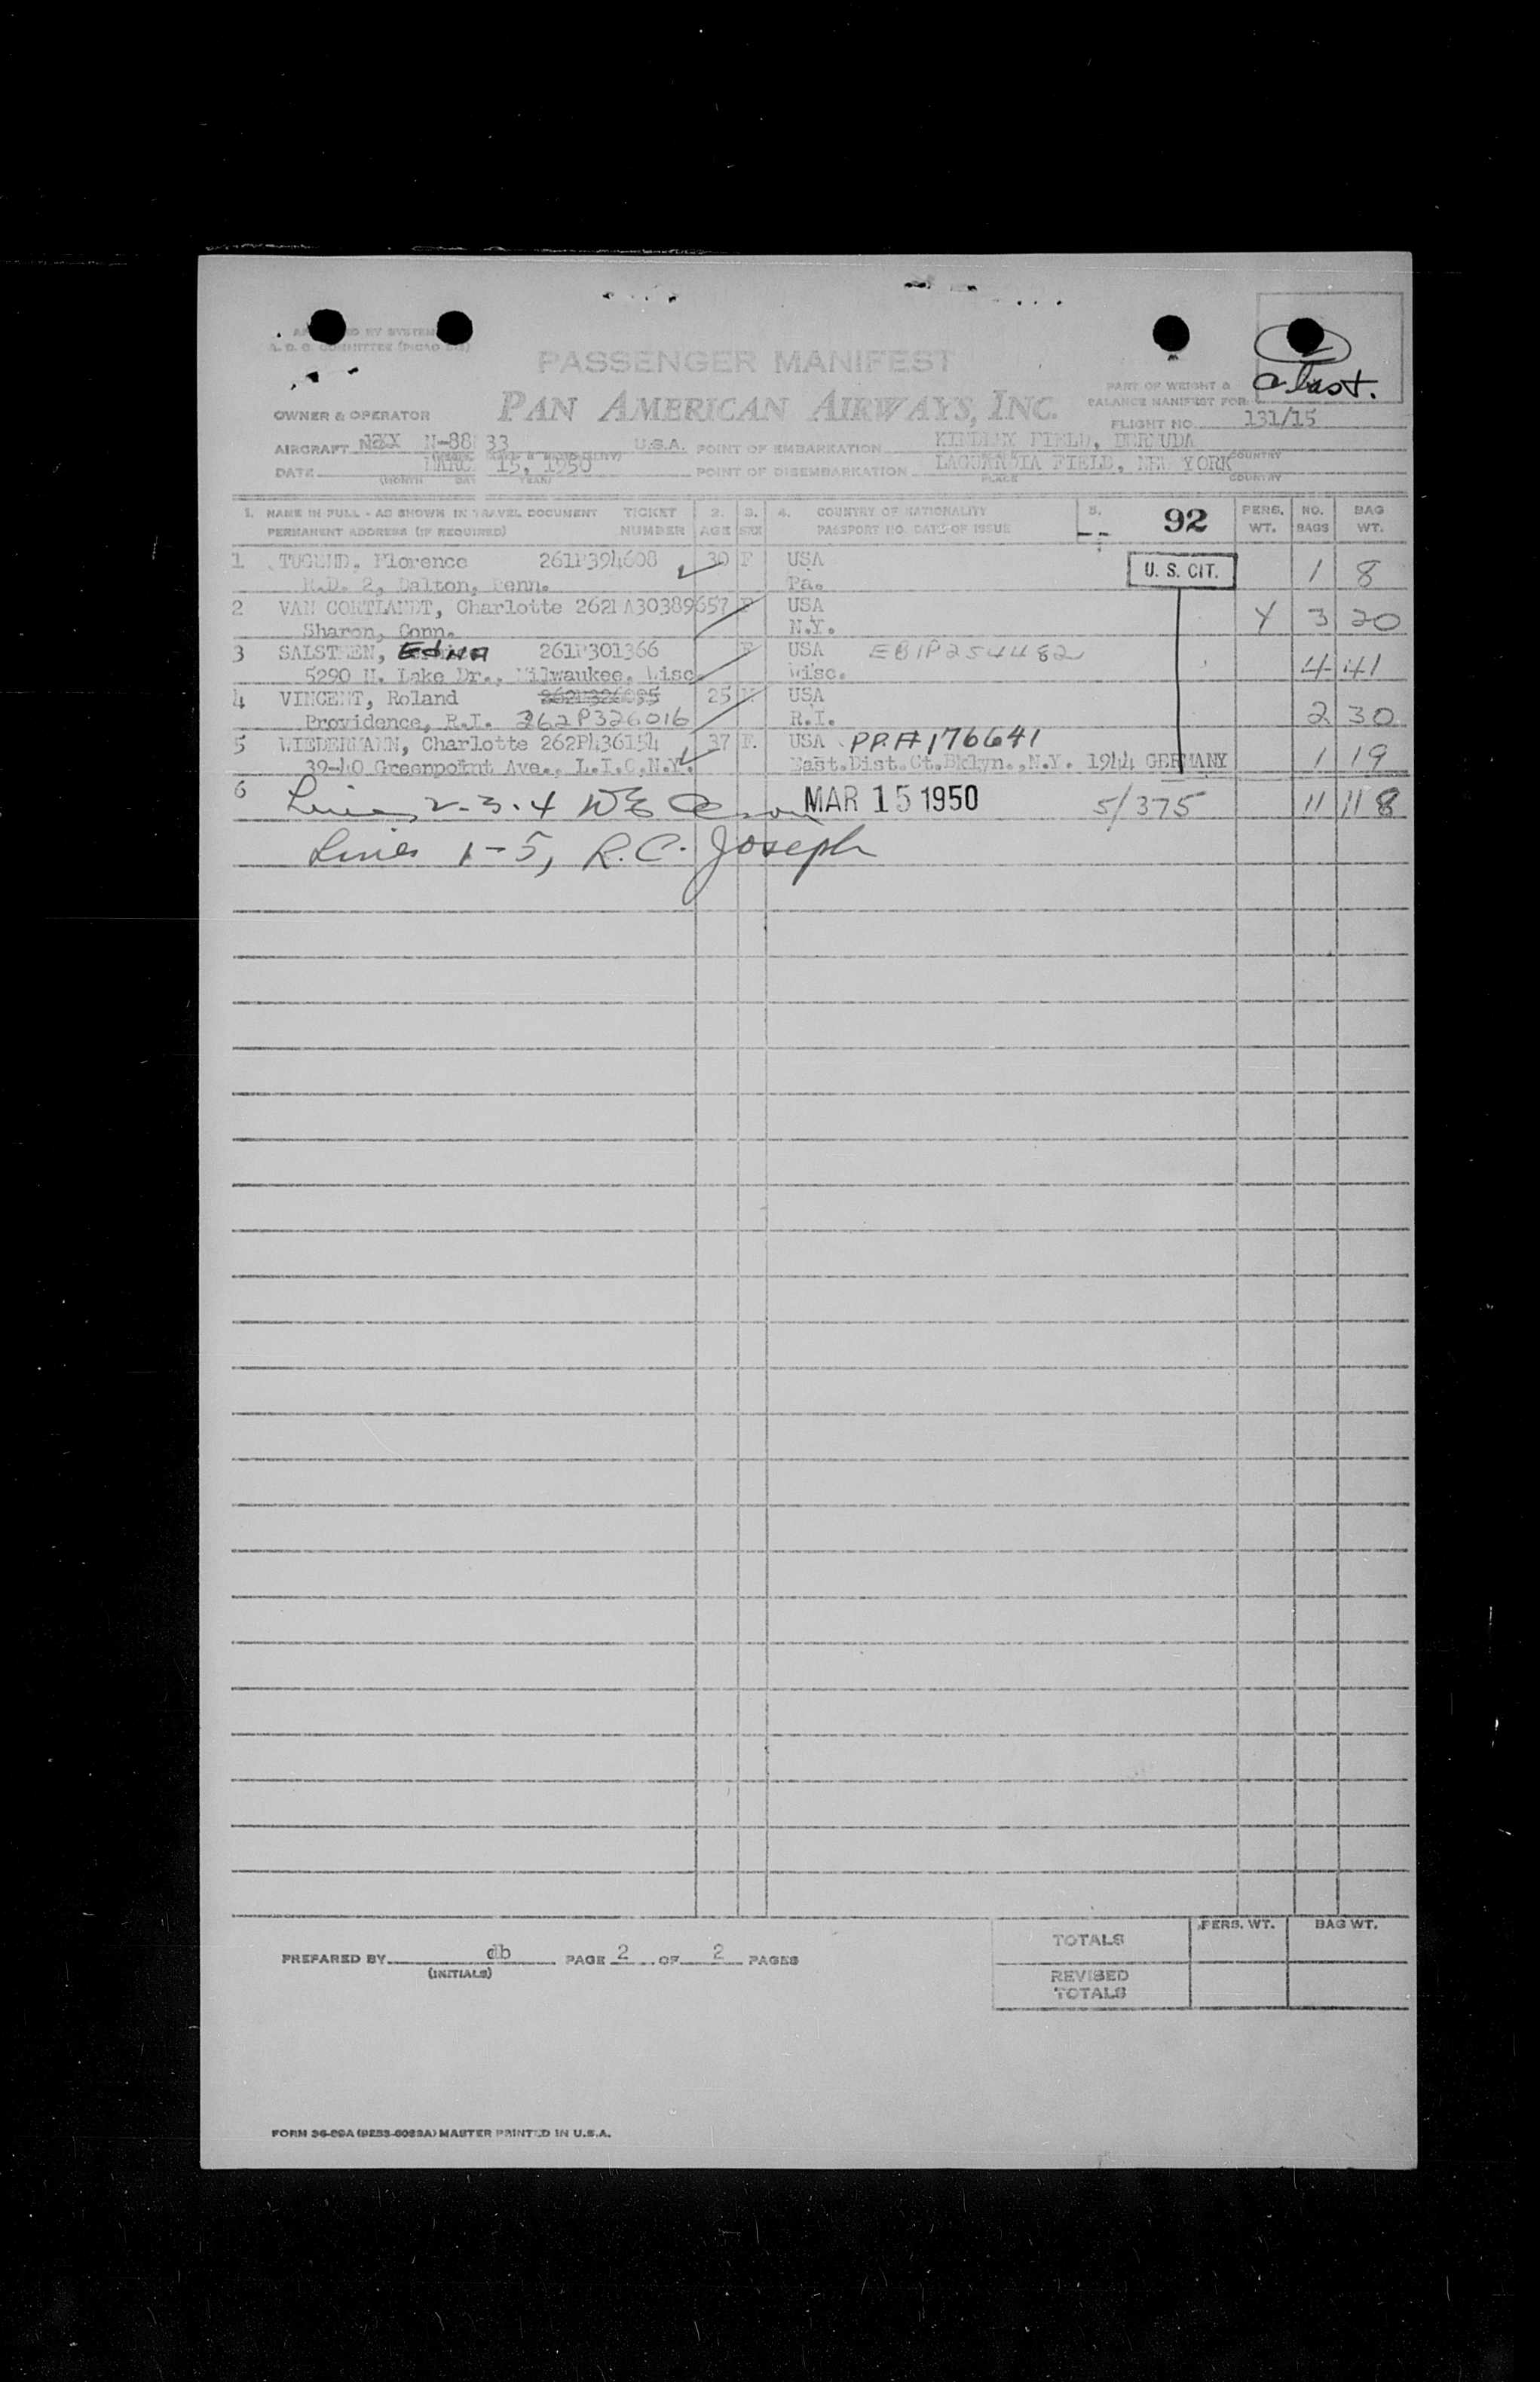 PASSENGER MANIFEST
PAN AMERICAN AIRWAYS, INC.
last.
PART OF WEIGHT &
BALANCE MANIFEST FOR
OWNER & OPERATOR
FLIGHT NO. 131/15
AIRCRAFT N-88 33 U.S.A. POINT OF EMBARKATION KINDLEY FIELD, BERMUDA
DATE 15, 1950 POINT OF DISEMBARKATION LAGUARDIA FIELD, NEW YORK
(MONTH DAY YEAR) PLACE COUNTRY
1. NAME IN FULL - AS SHOWN IN TRAVEL DOCUMENT TICKET 2. 3. 4. COUNTRY OF NATIONALITY 5. 92 PERS. NO. BAG
PERMANENT ADDRESS (IF REQUIRED) NUMBER AGE SEX PASSPORT NO. DATE OF ISSUE WT. BAGS WT.
1 Florence 261P394608 30 F USA U. S. CIT. 1 8
R.D. 2, Dalton, Penn. Pa.
2 VAN CORTLANDT, Charlotte 2621A30389657 F USA Y 3 20
Sharon, Conn. N.Y.
3 EdNA 261P301366 F USA EB1P254482
5290 N. Lake Dr., Milwaukee, Wisc. Wisc. 4 41
4 VINCENT, Roland 25 USA
Providence, R.I. 262P326016 R.I. 2 30
5 WIEDERMANN, Charlotte 262P436154 37 F. USA PP.# 176641
39-40 Greenpoint Ave., L.I.C.N.Y. East.Dist.Ct.Bklyn.,N.Y. 1944 GERMANY 1 19
6 Lines 2-3-4 MAR 15 1950 5/375 11 118
Lines 1-5, R.C. Joseph
PERS. WT. BAG WT.
TOTALS
PREPARED BY db PAGE 2 OF 2 PAGES
(INITIALS)
REVISED
TOTALS
MASTER PRINTED IN U.S.A.